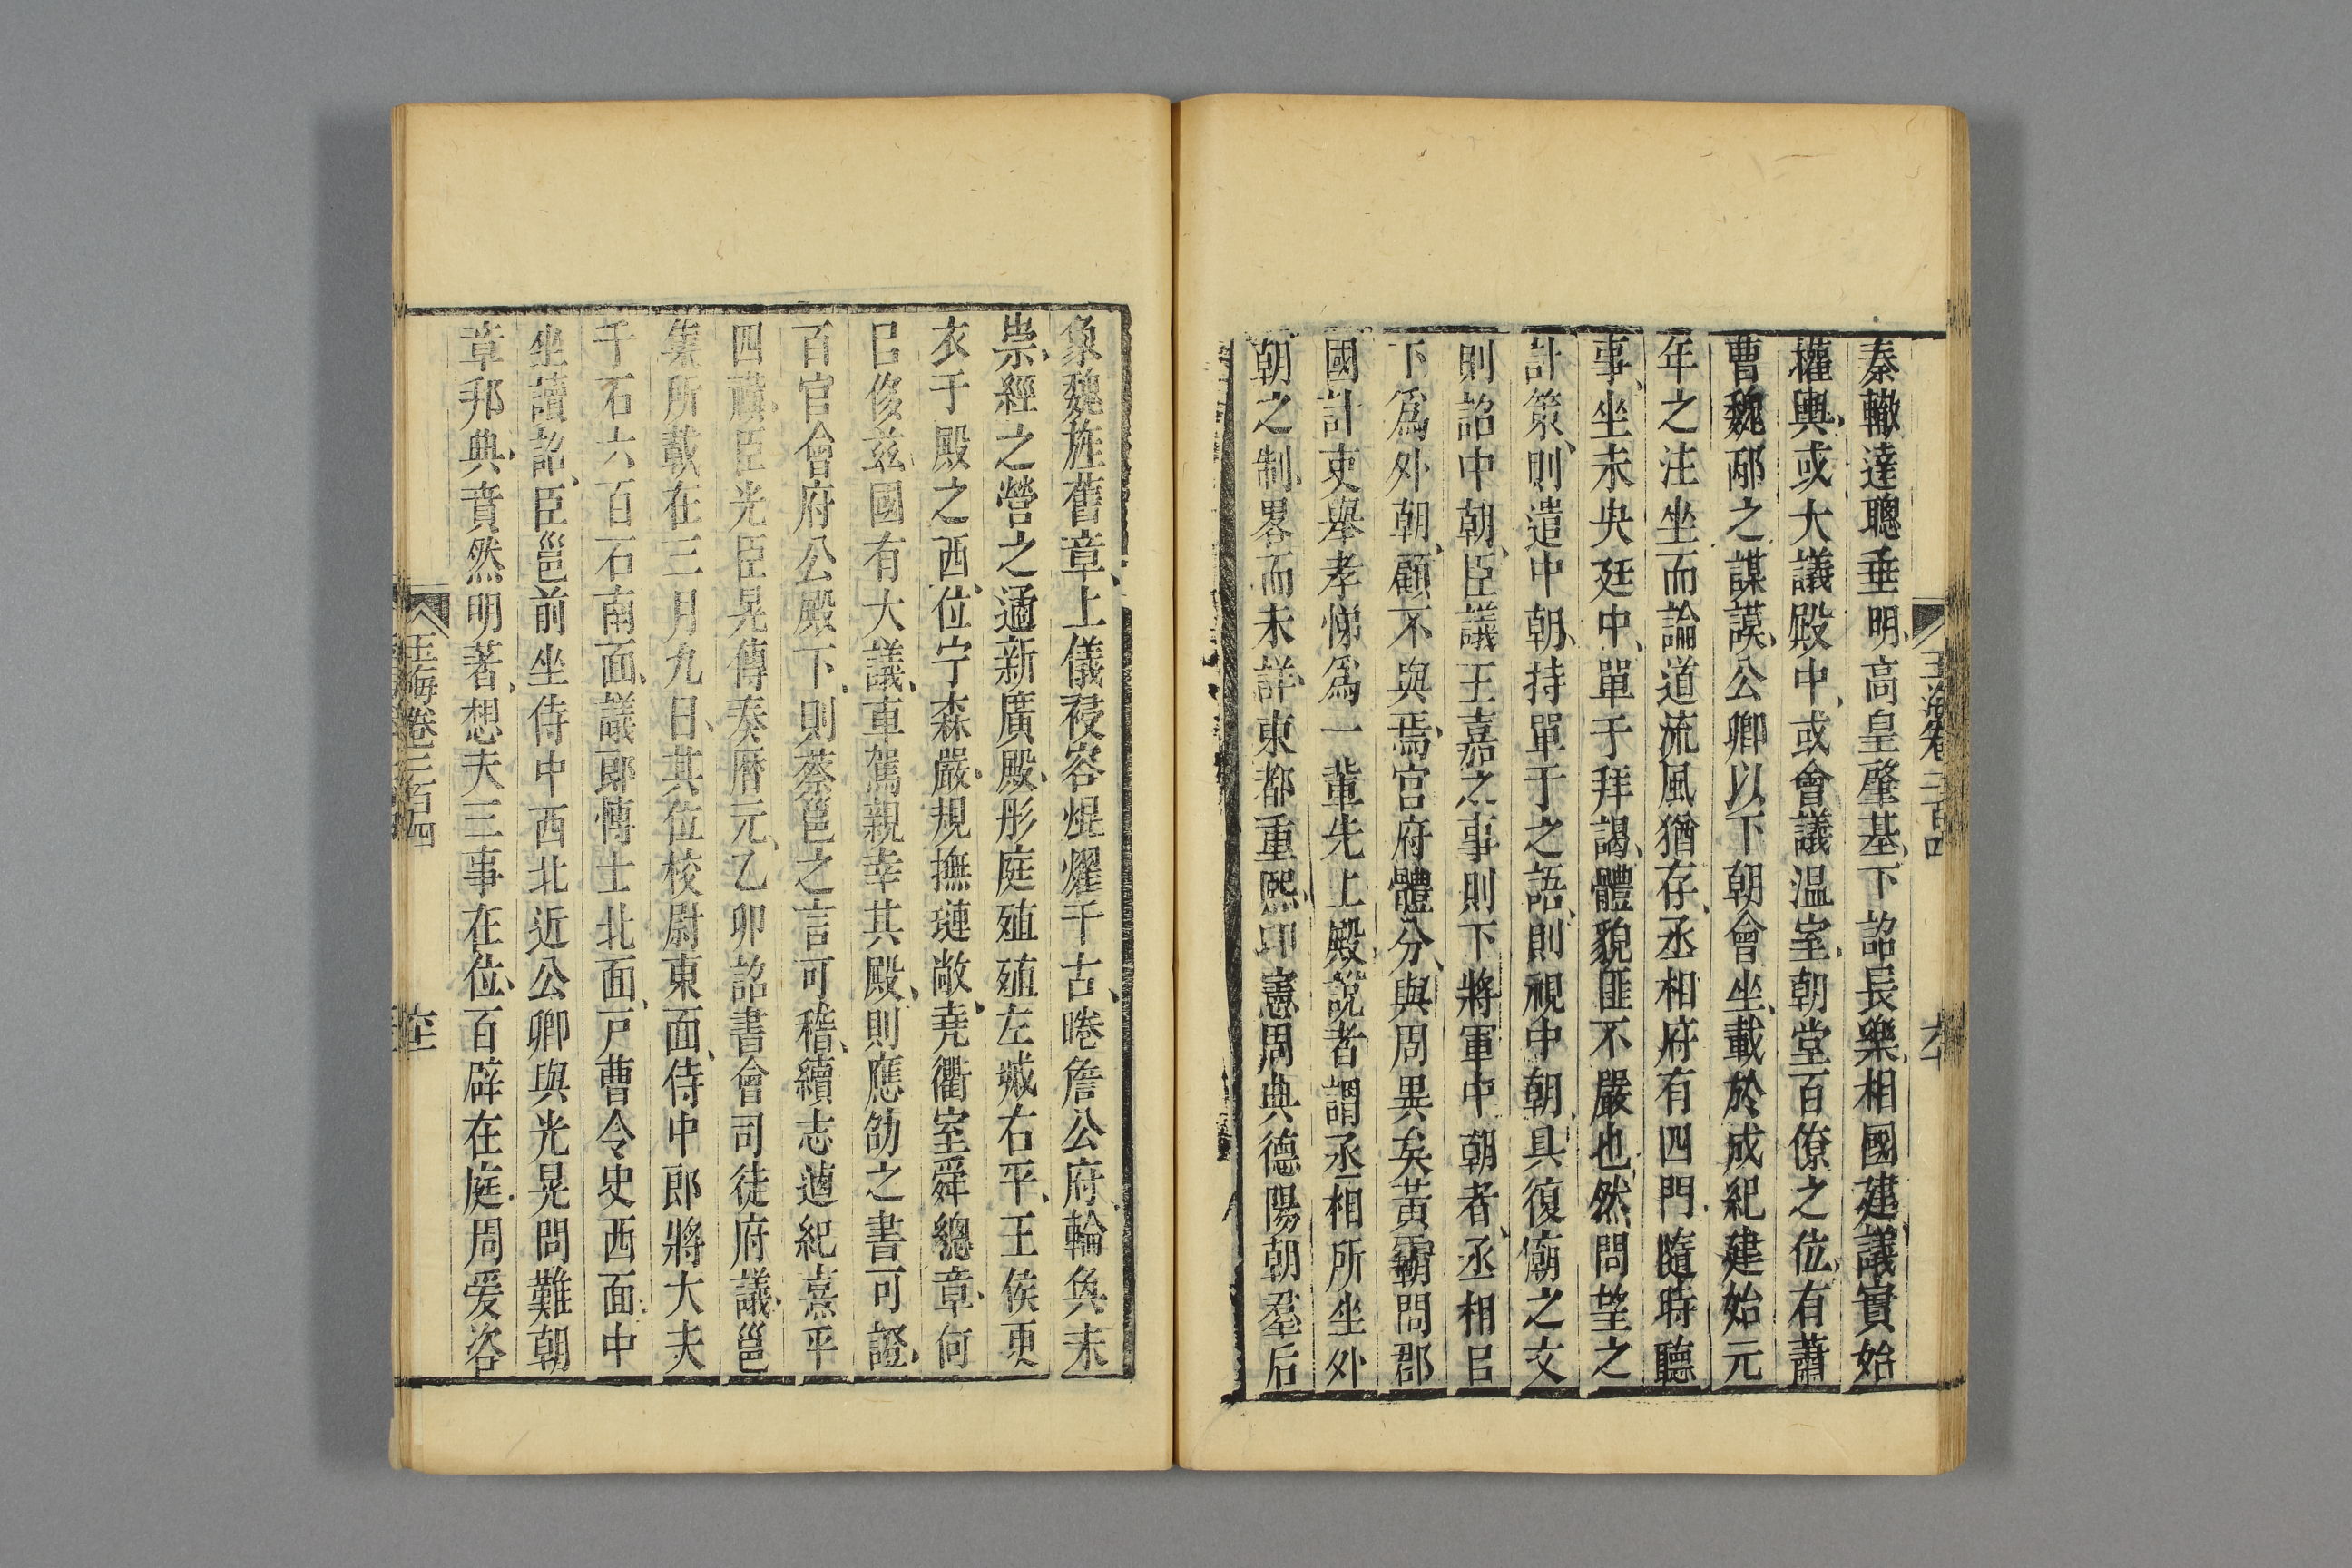 秦轍達聰垂明高皇肇基下詔長樂相國建議實始
權輿或大議殿中或會議温室朝堂百僚之位有蕭
曹魏邴之謀謨公卿以下朝會坐載於成紀建始元
年之注坐而論道流風猶存丞相府有四門隨時聽
事坐未央廷中單于拜謁體貌匪不嚴也然問望之
計策則遣中朝持單于之語則視中朝具復廟之文
則詔中朝臣議王嘉之事則下將軍中朝者丞相㠯
下爲外朝顧不與焉官府體分與周異矣黃霸問郡
國計吏舉孝悌爲一輩先上殿說者謂丞相所坐外
朝之制畧而未詳東都重熙卬憲周典德陽朝羣后
玉海卷二百四
象魏旌舊章上儀祲容焜燿千古睠詹公府輪奐未
崇經之營之遹新廣殿彤庭殖殖左墄右平王侯更
衣于殿之西位宁森嚴規撫璉敞堯衢室舜總章何
㠯侈兹國有大議車駕親幸其殿則應劭之書可證
百官會府公殿下則蔡邕之言可稽續志遹紀熹平
四禩臣光臣晃傳奏曆元乙卯詔書會司徒府議邕
集所載在三月九日其位校尉東面侍中郎將大夫
千石六百石南面議郎博士北面戸曹令史西面中
坐讀詔臣邕前坐侍中西北近公卿與光晃問難朝
章邦典賁然明著想夫三事在位百辟在庭周爰咨
玉海卷二百四